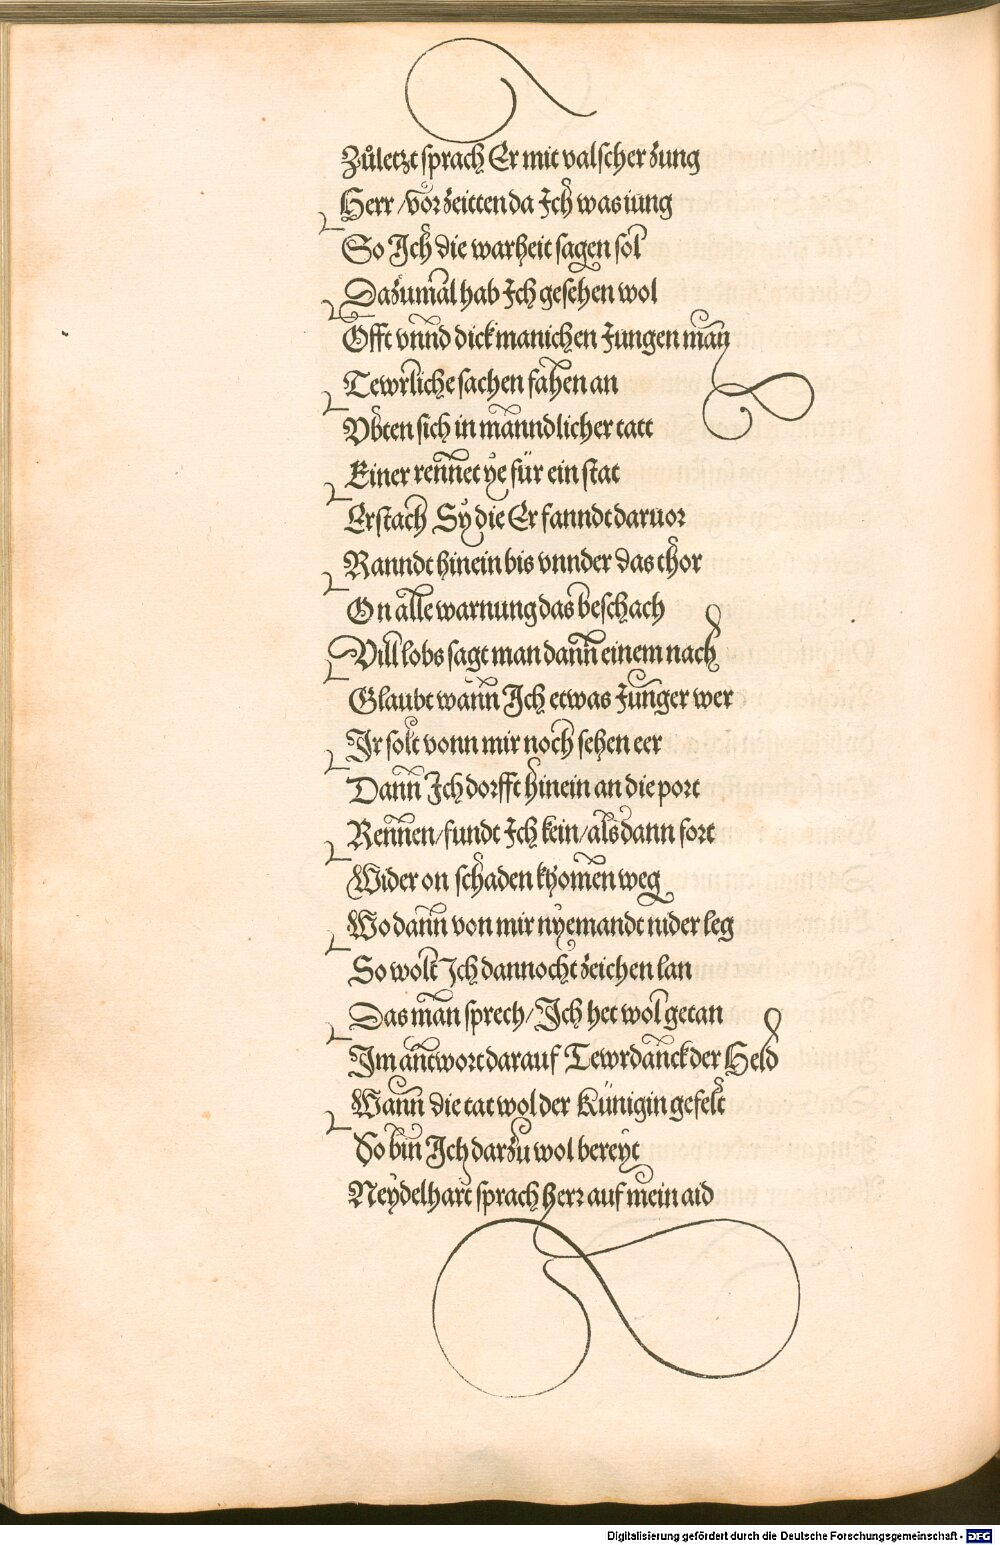 Zůletzt sprach Er mit valscher zung
Herr / vor zeitten da Ich was iung
So Ich die warheit sagen sol
Dazumal hab Ich gesehen wol
Offt vnnd dick manichen Jungen man
Tewrliche sachen fahen an
Vbten sich in männdlicher tatt
Einer rennet ye für ein stat
Erstach Sy die Er fanndt daruor
Ranndt hinein bis vnnder das thor
On alle warnung das beschach
Vill lobs sagt man dann einem nach
Glaubt wann Ich etwas Junger wer
Ir solt vonn mir noch sehen eer
Dann Ich dorfft hinein an die port
Rennen / fundt Ich kein / alsdann fort
Wider on schaden khomen weg
Wo dann von mir nyemandt nider leg
So wolt Ich dannocht zeichen lan
Das man sprech / Ich het wol getan
Im antwort darauf Tewrdanck der Held
Wann die tat wol der Künigin gefelt
So bin Ich darzu wol bereyt
Neydelhart sprach herr auf mein aid
Digitalisierung gefördert durch die Deutsche Forschungsgemeinschaft - DFG